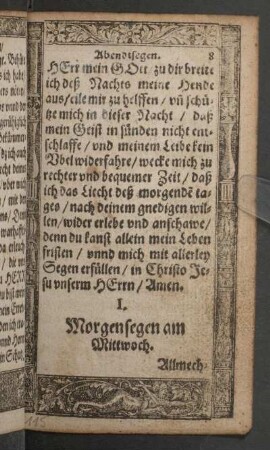 Abendtsegen. 8
HErr mein GOtt / zu dir breite
ich deß Nachts meine Hende
auß / eile mir zu helffen / vñ schü-
tze mich in dieser Nacht / daß
mein Geist in sünden nicht ent-
schlaffe / vnd meinem Leibe kein
Vbel widerfahre / wecke mich zu
rechter vnd bequemer Zeit / daß
ich das Liecht deß morgendē ta-
ges / nach deinem gnedigen wil-
len / wider erlebe vnd anschawe /
denn du kanst allein mein Leben
fristen / vnnd mich mit allerley
Segen erfüllen / in Christo Je-
su vnserm HErrn / Amen.
I.
Morgensegen am
Mittwoch.
Allmech-